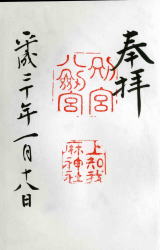 奉拝
別宮
八剱宮
上知我
麻神社
平成二十年一月十八日